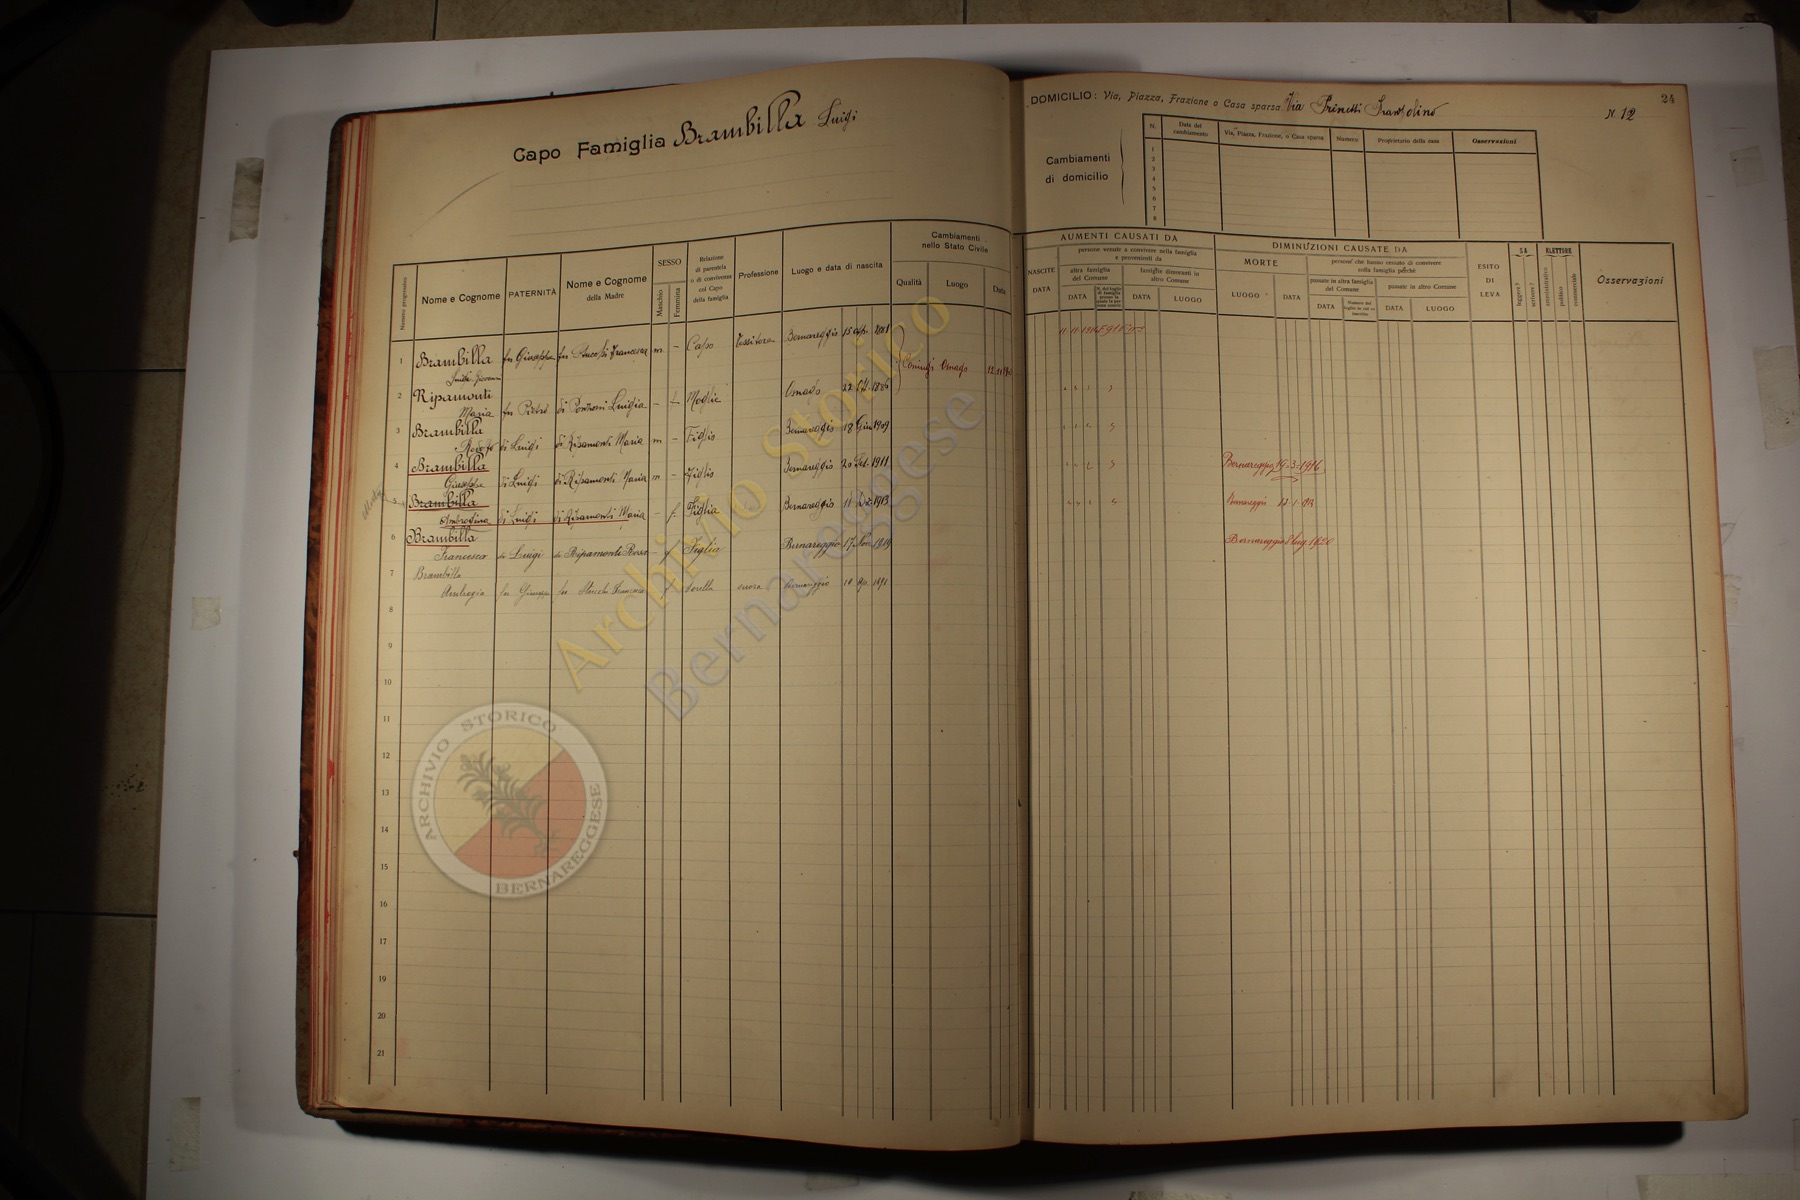 Capo Famiglia Brambilla Luigi
DOMICILIO: Via, Piazza, Frazione o Casa sparsa Via Prinetti
N. 12
24
Cambiamenti
di domicilio
N. Data del cambiamento Via, Piazza, Frazione, o Casa sparsa Numero Proprietario della casa Osservazioni
1
2
3
4
5
6
7
8
Numero progressivo
Nome e Cognome
PATERNITÀ
Nome e Cognome
della Madre
SESSO
Maschio
Femmina
Relazione
di parentela
o di convivenza
col Capo
della famiglia
Professione
Luogo e data di nascita
Cambiamenti
nello Stato Civile
Qualità
Luogo
Data
AUMENTI CAUSATI DA
NASCITE
DATA
persone venute a convivere nella famiglia
e provenienti da
altra famiglia
del Comune
DATA
famiglie dimoranti in
altro Comune
DATA
LUOGO
DIMINUZIONI CAUSATE DA
MORTE
LUOGO
DATA
persone che hanno cessato di convivere
colla famiglia perchè
passate in altra famiglia
del Comune
DATA
passate in altro Comune
DATA
LUOGO
ESITO
DI
LEVA
SA
leggere?
scrivere?
ELETTORE
amministrativo
politico
commerciale
Osservazioni
1 Brambilla fu Giuseppe fu Francesca m - Capo Bernareggio 15
Luigi Giovanni
Coniugi Osnago
2 Ripamonti
Maria fu Pietro di Ponzoni Luigia - f Moglie Osnago 22
3 Brambilla
di Luigi di Ripamonti Maria m - Figlio Bernareggio 18 Giu 1909
4 Brambilla
Giuseppe di Luigi di Ripamonti Maria m - Figlio Bernareggio 20 Set. 1911 Bernareggio 19-3-1916
5 Brambilla
Ambrogina di Luigi di Ripamonti Maria - f. Figlia Bernareggio 11 Dic 1913 Bernareggio
6 Brambilla
Francesca di Luigi di Ripamonti Rosa - f Figlia Bernareggio 17 Nov. 1919 Bernareggio 8 lug 1920
7 Brambilla
Ambrogia fu Giuseppe fu Francesca f sorella suora Bernareggio 1891
8
9
10
11
12
13
14
15
16
17
18
19
20
21
Archivio Storico
Bernareggese
ARCHIVIO STORICO
BERNAREGGESE